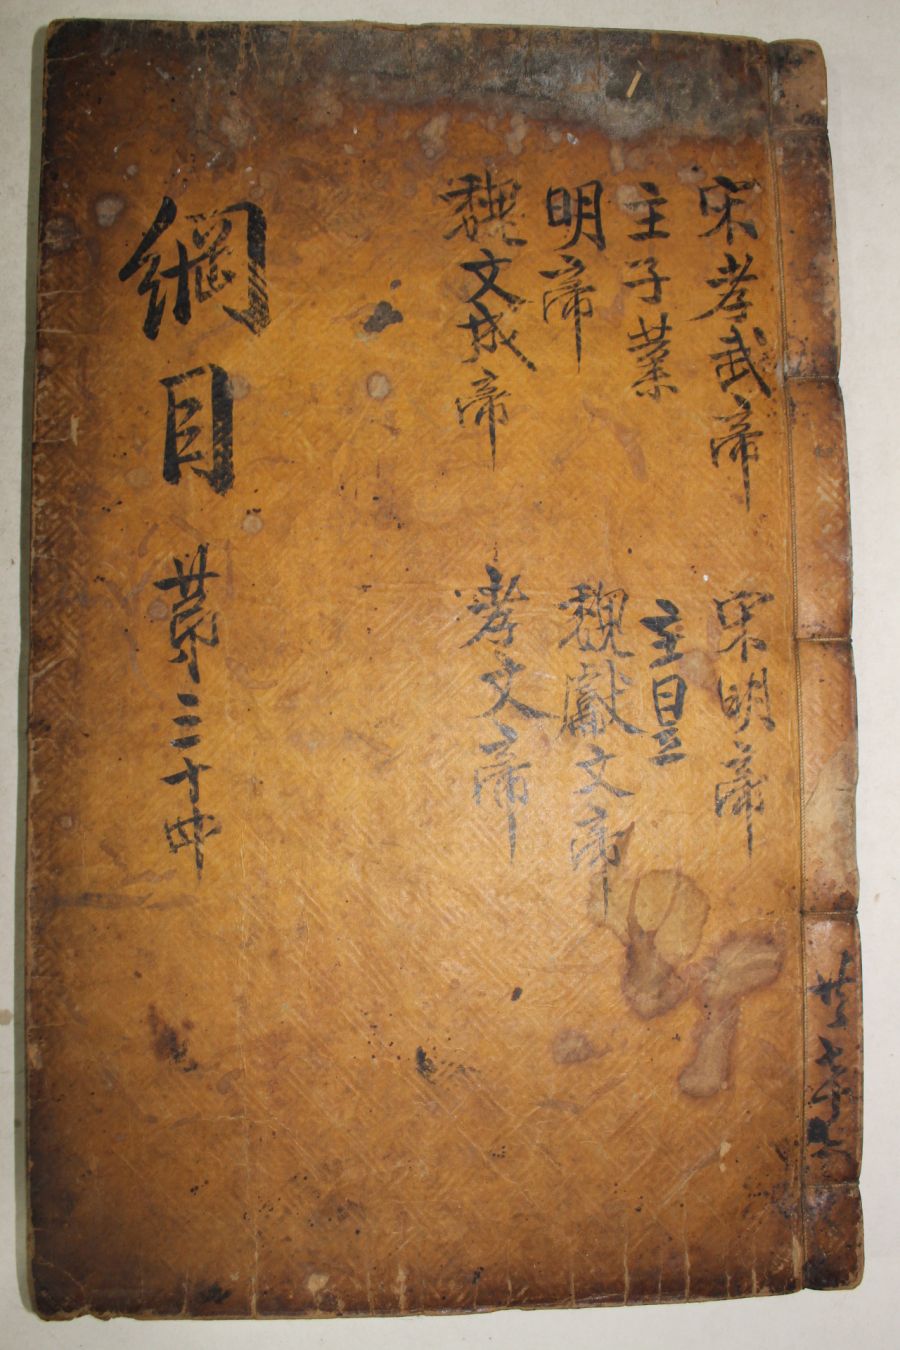 宋孝武帝
主子業
明帝
魏文成帝
宋明帝
主昱
魏獻文帝
孝文帝
綱目 苐三十四